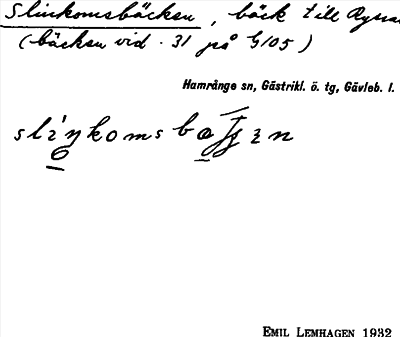 Slinkomsbäcken, bäck till
(bäcken vid . 31 på G105)
Hamrånge sn, Gästrikl. ö. tg, Gävleb. l.
EMIL LEMHAGEN 1932